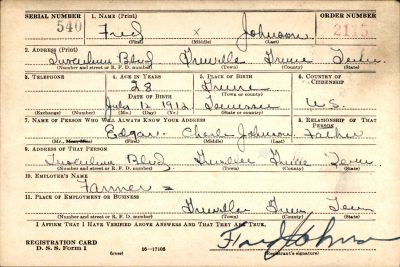 SERIAL NUMBER 1. NAME (Print) ORDER NUMBER
540 Fred x Johnson 2115
(First) (Middle) (Last)
2. ADDRESS (Print)
Tusculum Blvd Greene
(Number and street or R. F. D. number) (Town) (County) (State)
3. TELEPHONE 4. AGE IN YEARS 5. PLACE OF BIRTH 6. COUNTRY OF CITIZENSHIP
28 Greene
DATE OF BIRTH (Town or county)
July 12 1912 Tennessee U.S.
(Exchange) (Number) (Mo.) (Day) (Yr.) (State or country)
7. NAME OF PERSON WHO WILL ALWAYS KNOW YOUR ADDRESS 8. RELATIONSHIP OF THAT PERSON
Edgar Johnson Father
(Mr., Mrs., Miss) (First) (Middle) (Last)
9. ADDRESS OF THAT PERSON
Tusculum Blvd Greene Tenn
(Number and street or R. F. D. number) (Town) (County) (State)
10. EMPLOYER'S NAME
Farmer =
11. PLACE OF EMPLOYMENT OR BUSINESS
Tenn
(Number and street or R. F. D. number) (Town) (County) (State)
I AFFIRM THAT I HAVE VERIFIED ABOVE ANSWERS AND THAT THEY ARE TRUE.
REGISTRATION CARD
D. S. S. Form 1 (over) 16—17105 (Registrant's signature)